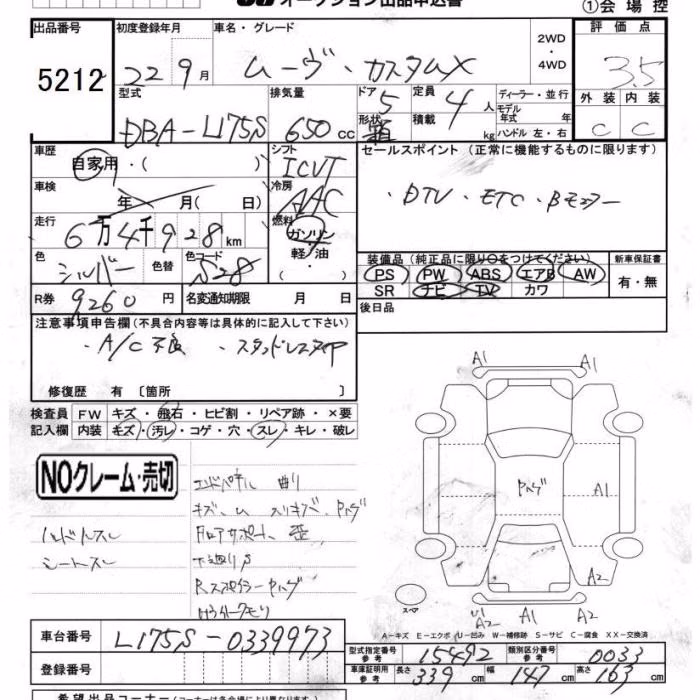 オークション出品申込書
①会場控
出品番号 初度登録年月 車名・グレード 2WD・4WD 評価点
5212 22 9月 ムーヴ・カスタムX 3.5
型式 排気量 ドア 5 定員 4人 ディーラー・並行 外装 内装
DBA-L175S 650cc 形状 箱 積載 kg モデル年式 年 ハンドル 左・右 C C
車歴 自家用・( ) シフト ICVT セールスポイント(正常に機能するものに限ります)
車検 年 月( 日) 冷房 AAC ・DTV ・ETC ・Bモニター
走行 6万4千928km 燃料 ガソリン・軽油・
色 シルバー 色替 色コード S28 装備品(純正品に限り○をつけてください) 新車保証書
PS PW ABS エアB AW 有・無
SR ナビ TV カワ
R券 9260円 名変通知期限 月 日 後日品
注意事項申告欄(不具合内容等は具体的に記入して下さい)
・A/C不良 ・スタッドレスタイヤ
修復歴 有〔箇所 〕
検査員 FW キズ・飛石・ヒビ割・リペア跡・×要
記入欄 内装 キズ・汚レ・コゲ・穴・スレ・キレ・破レ
NOクレーム・売切
A1 A1
A1
A2 A2
A2 A1 A2
スペア
ハンドルスレ
シートスレ
A-キズ E-エクボ U-凹み W-補修跡 S-サビ C-腐食 XX-交換済
車台番号 L175S-0339973
登録番号
型式指定番号 参考 15492 類別区分番号 参考 0033
車庫証明用 参考 長さ 339cm 幅 147cm 高さ 163cm
希望出品コーナー